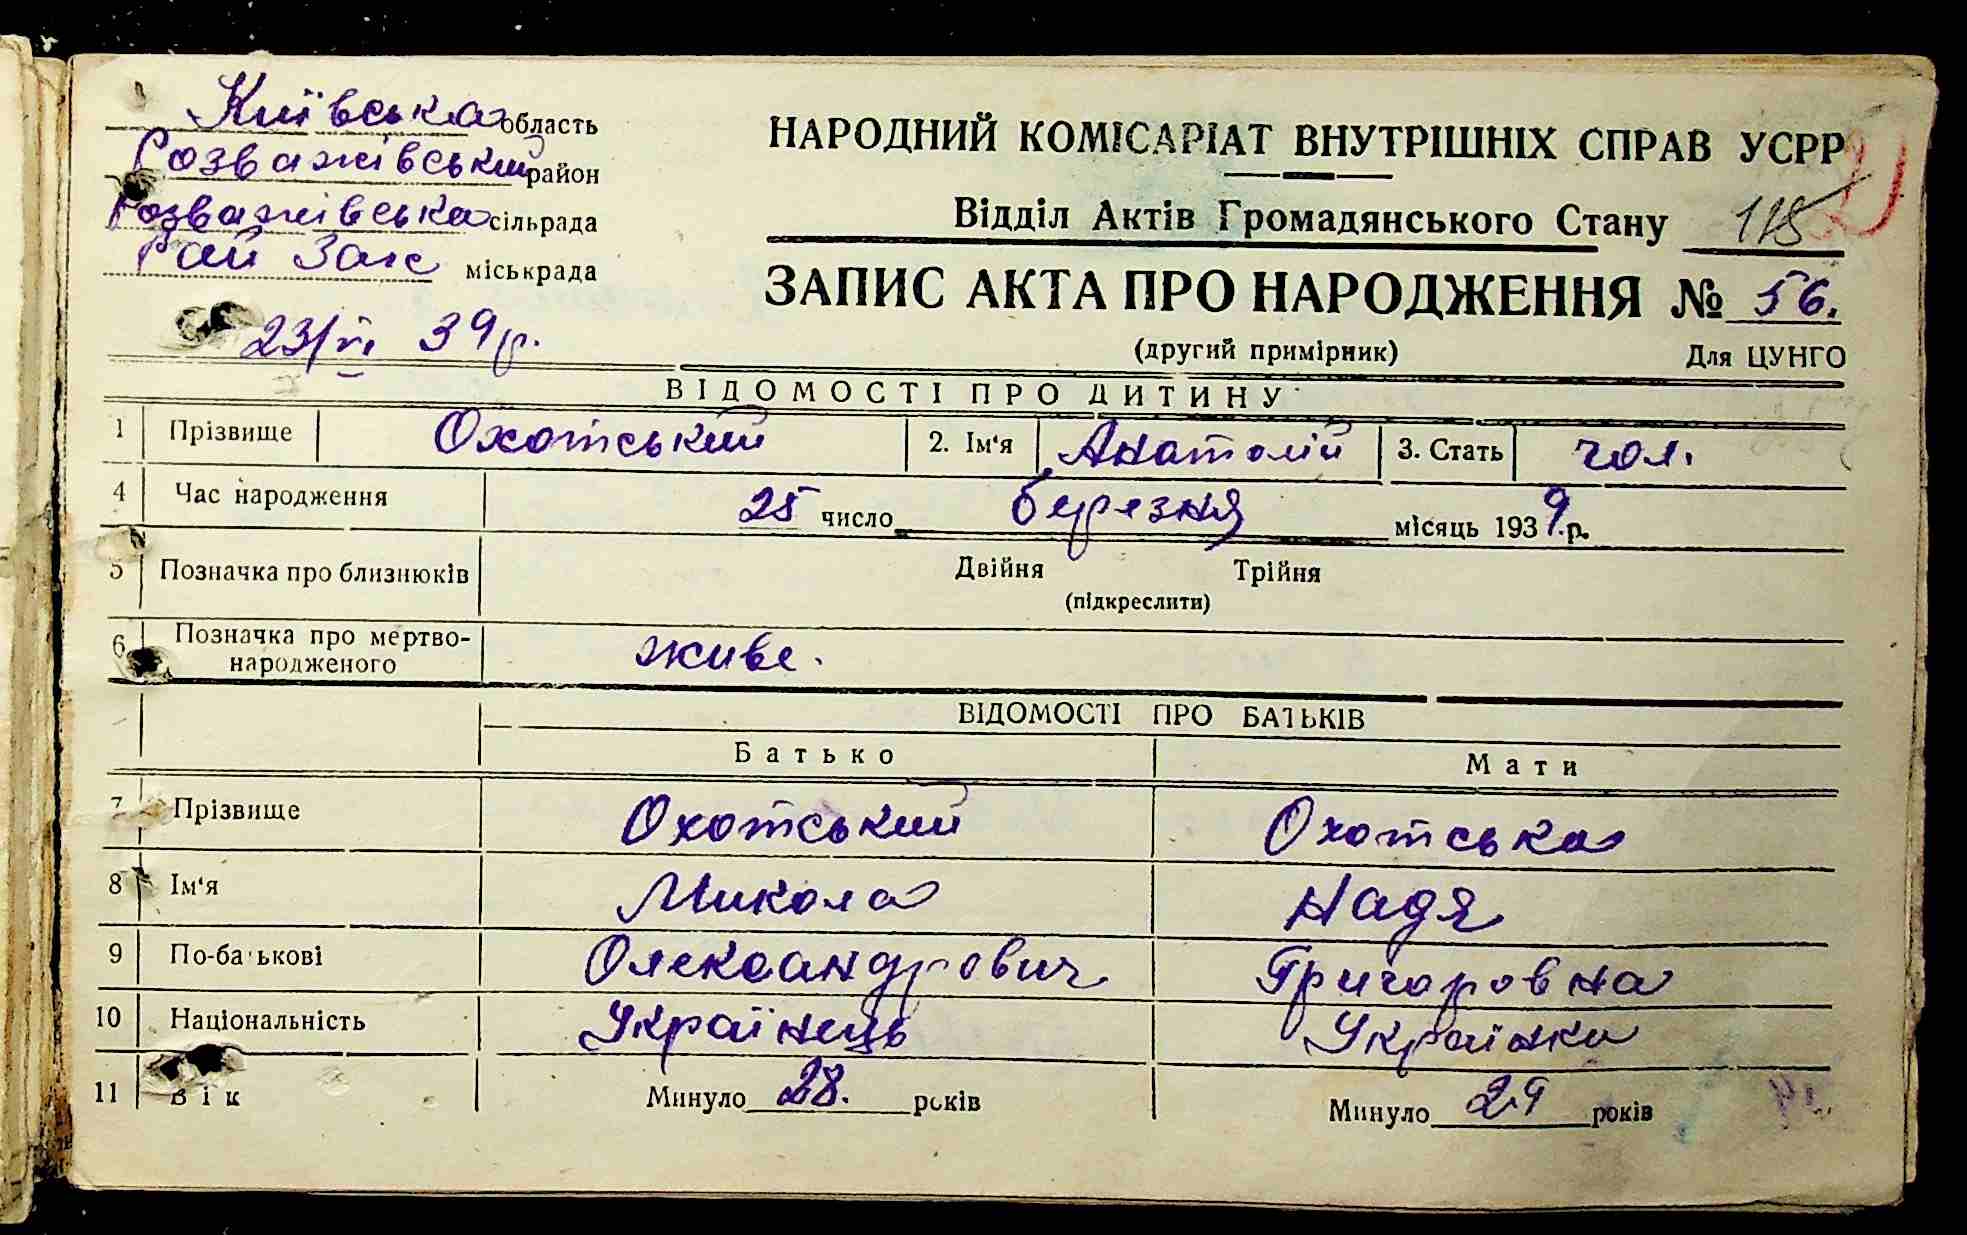 Київська область
Розважівський район
Розважівська сільрада
Рай Загс міськрада
23/VI 39 р.
НАРОДНИЙ КОМІСАРІАТ ВНУТРІШНІХ СПРАВ УСРР
Відділ Актів Громадянського Стану 118
ЗАПИС АКТА ПРО НАРОДЖЕННЯ № 56.
(другий примірник) Для ЦУНГО
ВІДОМОСТІ ПРО ДИТИНУ
1 Прізвище Охотський 2. Ім'я Анатолій 3. Стать чол.
4 Час народження 25 число березня місяць 1939 р.
5 Позначка про близнюків Двійня Трійня
(підкреслити)
6 Позначка про мертво-
народженого живе.
ВІДОМОСТІ ПРО БАТЬКІВ
Батько Мати
7 Прізвище Охотський Охотська
8 Ім'я Микола Надя
9 По-батькові Олександрович Григоровна
10 Національність Українець Українка
11 Вік Минуло 28. років Минуло 29 років